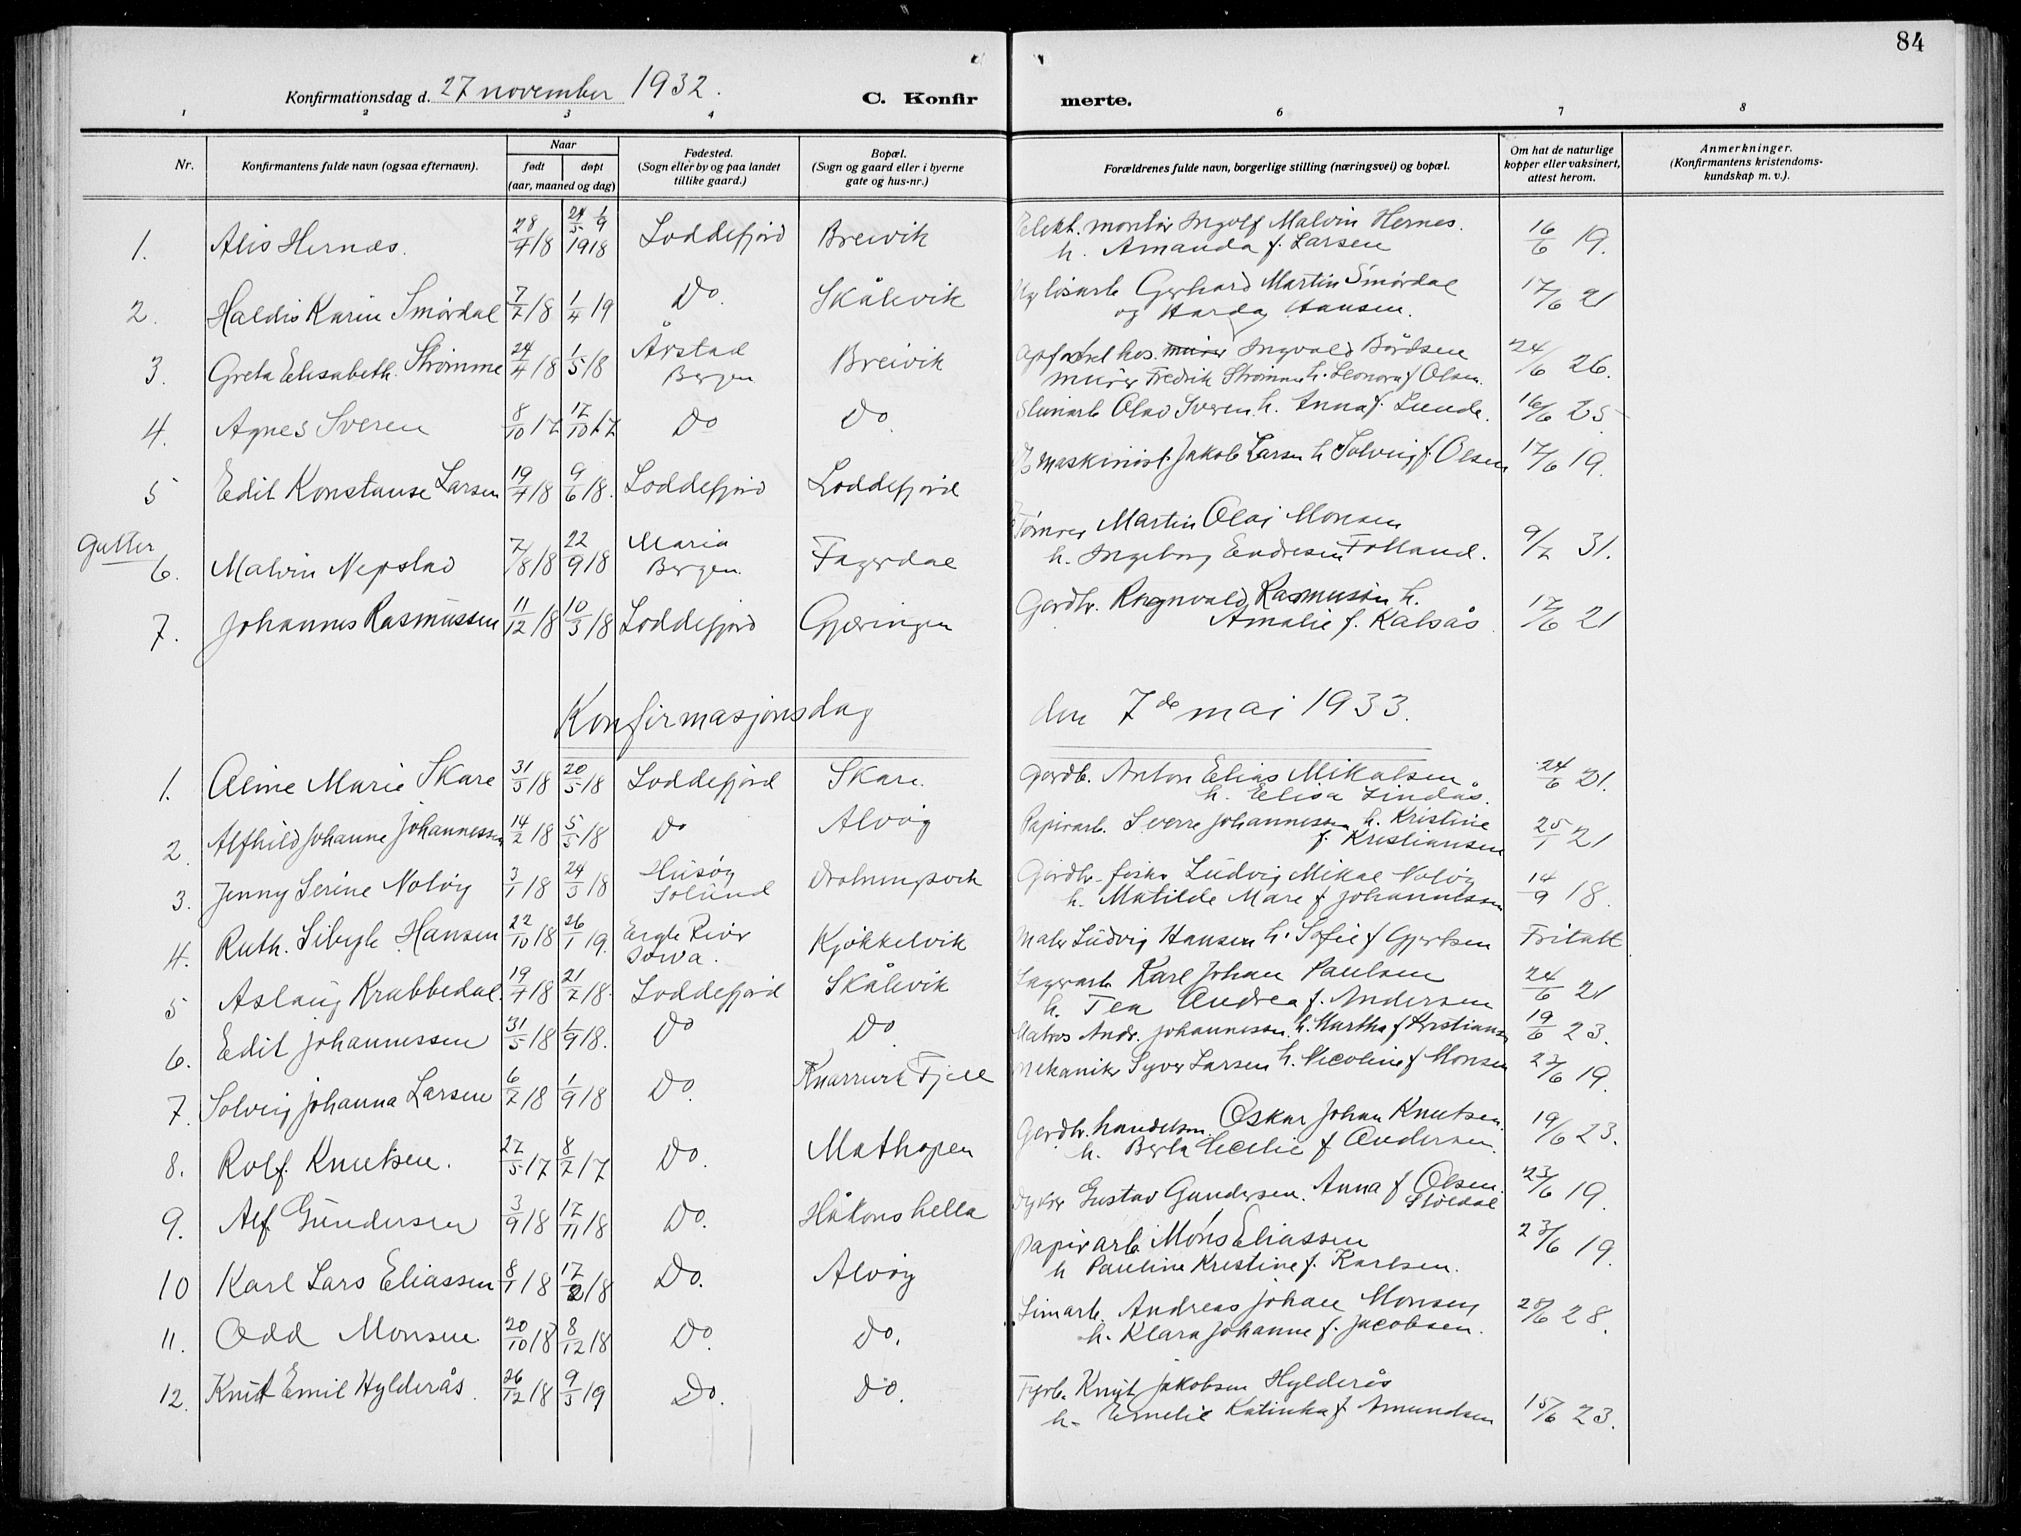 84
Konfirmationsdag d. 27 november 1932. C. Konfir merte.
1 2 3 4 6 7 8
Nr. Konfirmantens fulde navn (ogsaa efternavn). Naar født døpt (aar, maaned og dag) Fødested. (Sogn eller by og paa landet tillike gaard.) Bopæl. (Sogn og gaard eller i byerne gate og hus-nr.) Forældrenes fulde navn, borgerlige stilling (næringsvei) og bopæl. Om hat de naturlige kopper eller vaksinert, attest herom. Anmerkninger. (Konfirmantens kristendoms-kundskap m. v.).
1. Alis Hernæs. 28/4 18 1918 Loddefjord Breivik Elekt. montør Ingolf Malvin Hernes. h. Amanda f. Larsen 16/6 19.
2. Haldis Karin Smørdal 7/7 18 1/4 19 Do. Skålevik Gerhard Martin Smørdal og Harda Hansen. 17/6 21
3. Greta Elisabeth Strømme 24/4 18 1/5 18 Årstad Bergen Breivik hos murer Ingvald Bårdsen murer Fredrik Strømme h. Leonora f Olsen. 24/6 26.
4. Agnes Sveren 8/10 17 17/10 17 Do Do. Olav Sveren h. Anna f. Lunde. 16/6 25
5 Edit Konstanse Larsen 19/4 18 9/6 18. Loddefjord Loddefjord Maskinist Jakob Larsen h Solveig f. Olsen 17/6 19.
Gutter
6. Malvin Nepstad 7/8 18 22/9 18 Maria Bergen. Fagerdal Tømrer Martin Olai Monsen h. Ingeborg Endresen Folland. 9/7 31.
7. Johannes Rasmussen 11/12 18 10/3 18 Loddefjord Gjæringen Gardbr. Ragnvald Rasmussen h. Amalie f. Kalsås 17/6 21
Konfirmasjonsdag den 7de mai 1933.
1. Aline Marie Skare 31/3 18 20/5 18 Loddefjord Skare. Gardb. Anton Elias Mikalsen. h. Elisa Lindås. 24/6 21.
2. Alfhild Johanne Johannessen 14/2 18 5/5 18 Do Alvøy Papirarb. Sverre Johannessen h. Kristine f. Kristiansen 25/1 21
3. Jenny Serine Nolvøy 3/1 18 24/3 18 Husøy Solund Drotningsvik Gardbr. fisker Ludvig Mikal Nolvøy h. Matilde Mare f Johannessen 14/9 18.
4. Ruth. Sibyle Hansen 22/10 18 26/1 19. Eagle River Kjøkkelvik Maler Ludvig Hansen h. Sofie f Gjertsen Fritatt
5 Aslaug Krabbedal. 19/4 18 21/7 18. Loddefjord Skålevik Lagerarb Karl Johan Paulsen h. Tea Andrea f. Andersen 24/6 21
6. Edit Johannessen 31/5 18 1/9 18. Do Do. Matros Andr. Johannessen h. Martha f Kristiansen 19/6 23.
7. Solveig Johanna Larsen 6/7 18 1/9 18 Do. Knarrevik Fjell Mekaniker Syver Larsen h. Nicoline f Monsen 23/6 19.
8. Rolf Knutsen. 27/5 17 8/7 17 Do. Mathopen Gardbr. handelsm. Oskar Johan Knutsen. h. Berta Cecilie f Andersen. 19/6 23.
9. Alf Gundersen 3/9 18 17/11 18 Do. Håkonshella Dykker Gustav Gundersen. Anna f Olsen. Støldal 23/6 19.
10 Karl Lars Eliassen 8/1 18 17/2 18 Do. Alvøy Papirarb Mons Eliassen h Pauline Kristine f. Karlsen. 23/6 19.
11. Odd Monsen 20/10 18 8/12 18 Do. Do. Limarb. Andreas Johan Monsen h. Klara Johanne f. Jacobsen. 25/6 28.
12. Knut Emil Hylderås. 26/12 18 9/3 19 Do. Do. Fyrb. Knut Jakobsen Hylderås h. Emelie Katinka f Amundsen 15/6 23.